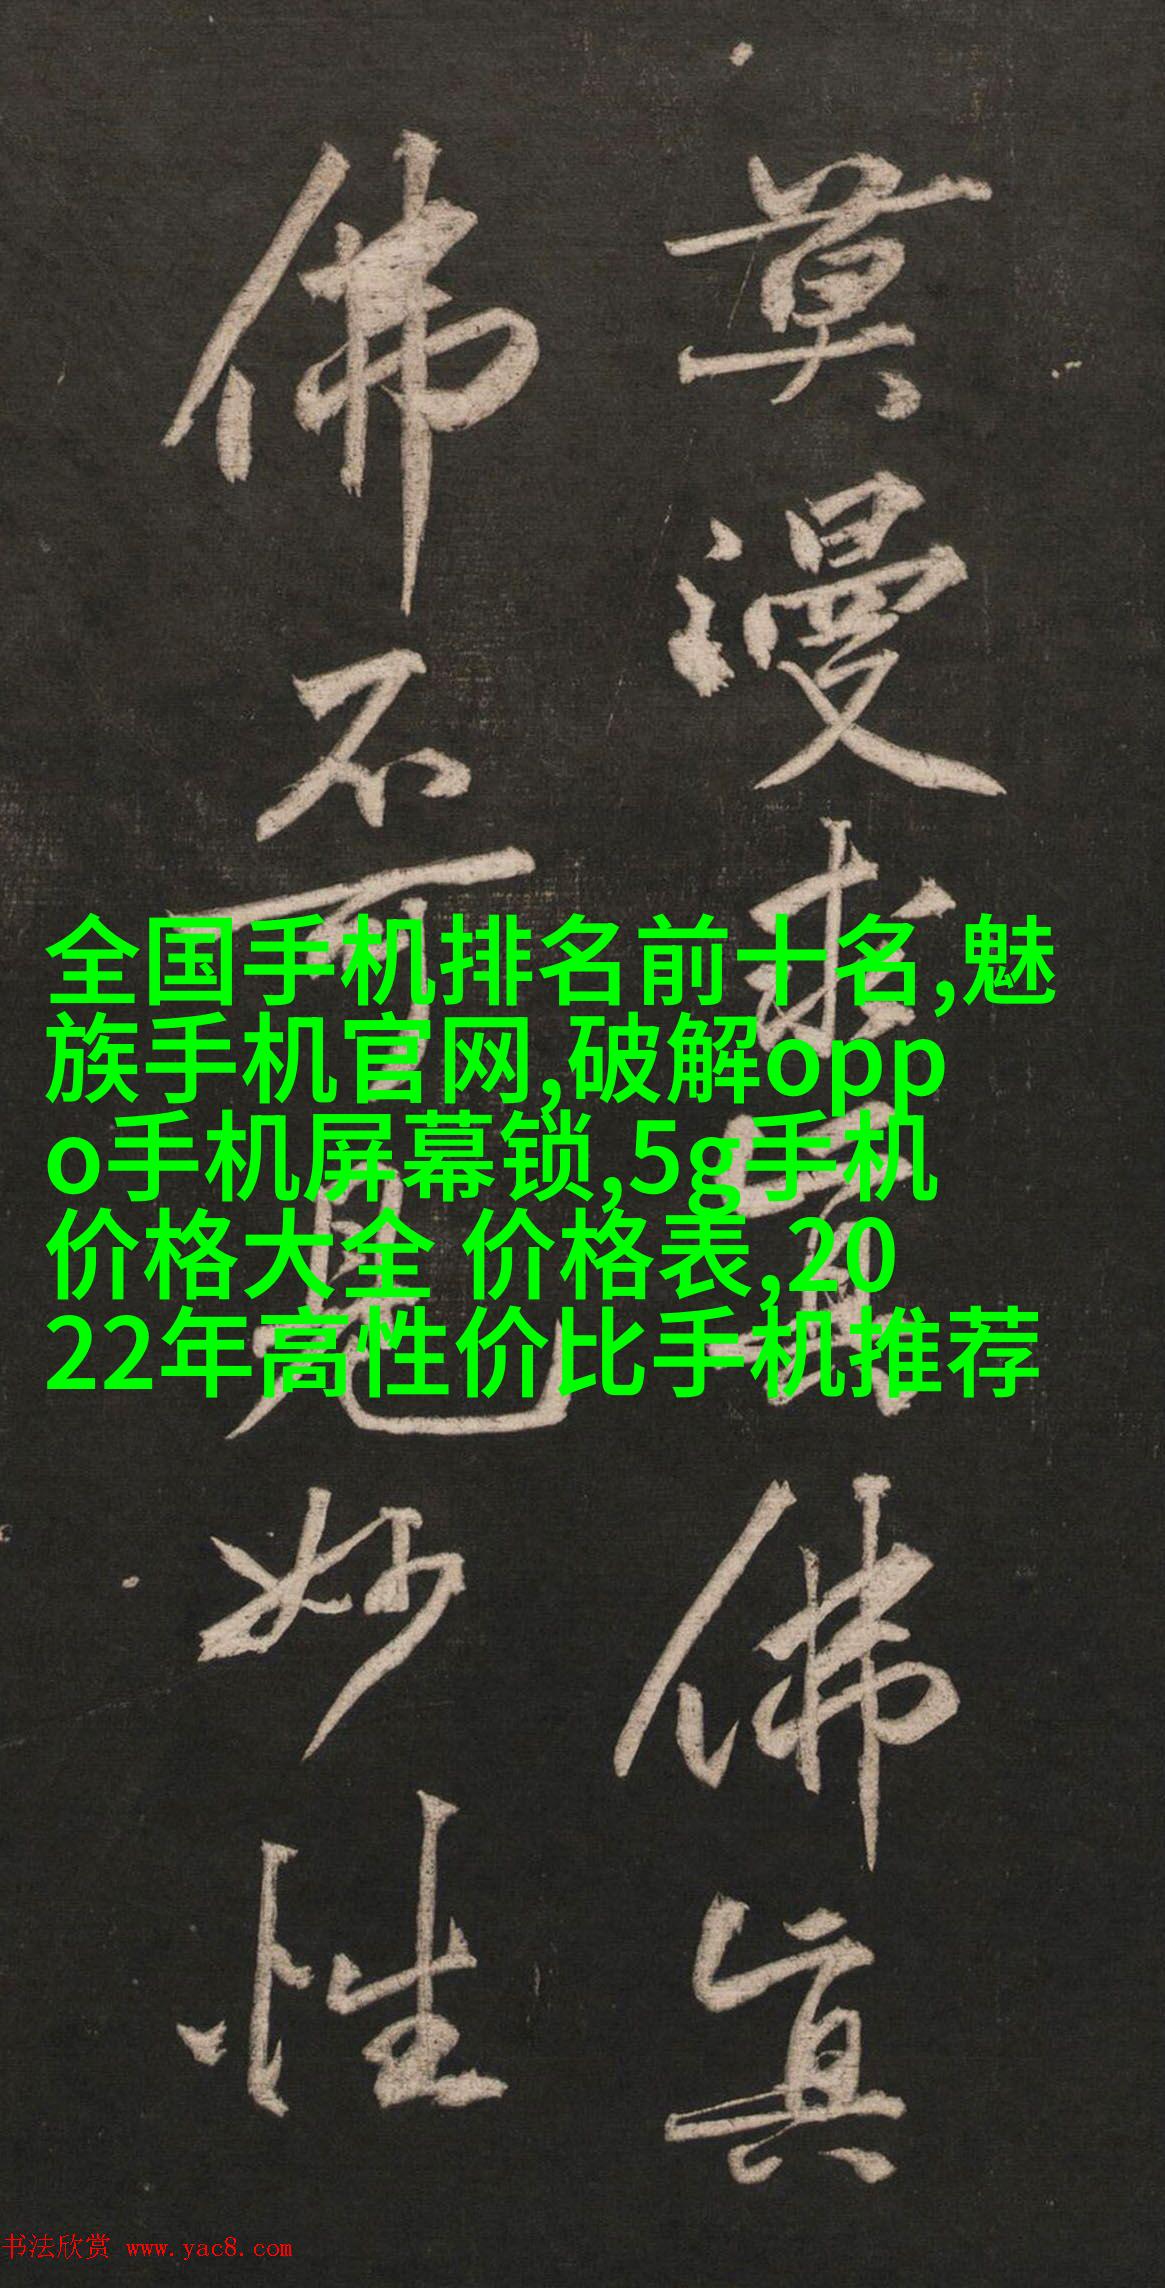 莫漫求佛真
佛不可見妙性
全国手机排名前十名,魅
族手机官网,破解opp
o手机屏幕锁,5g手机
价格大全 价格表,20
22年高性价比手机推荐
书法欣赏 www.yac8.com